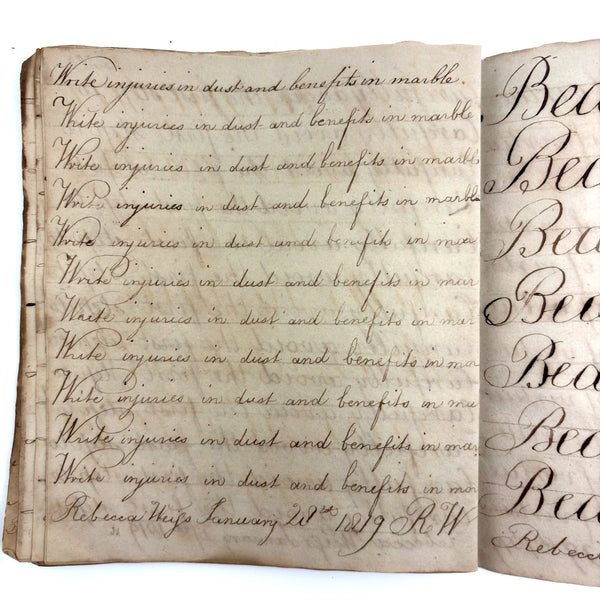 Write injuries in dust and benefits in marble.
Write injuries in dust and benefits in marble
Write injuries in dust and benefits in marble
Write injuries in dust and benefits in marble
Write injuries in dust and benefits in mar
Write injuries in dust and benefits in mar
Write injuries in dust and benefits in mar
Write injuries in dust and benefits in mar
Write injuries in dust and benefits in mar
Write injuries in dust and benefits in mar
Write injuries in dust and benefits in mar
Rebecca January 1819 RW
Bea
Bea
Bea
Bea
Bea
Bea
Bea
Rebecc